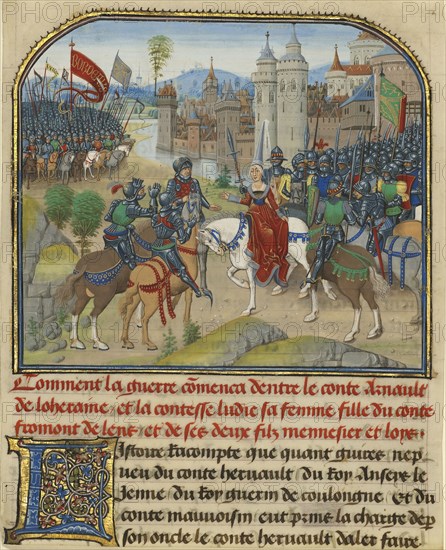 Comment la guerre cōmenca dentre le conte Arnault
de loheraine / et la contesse ludie sa femme fille du conte
fromont de lens / et de ses deux filz mennesier et loys .
Istoire Racompte que quant guires nep
ueu du conte heruault / du Roy Anseys le
Jenne / du Roy guerin de coulongne / et du
conte mauuoisin eut prins la charge de p
son oncle le conte heruault daler faire